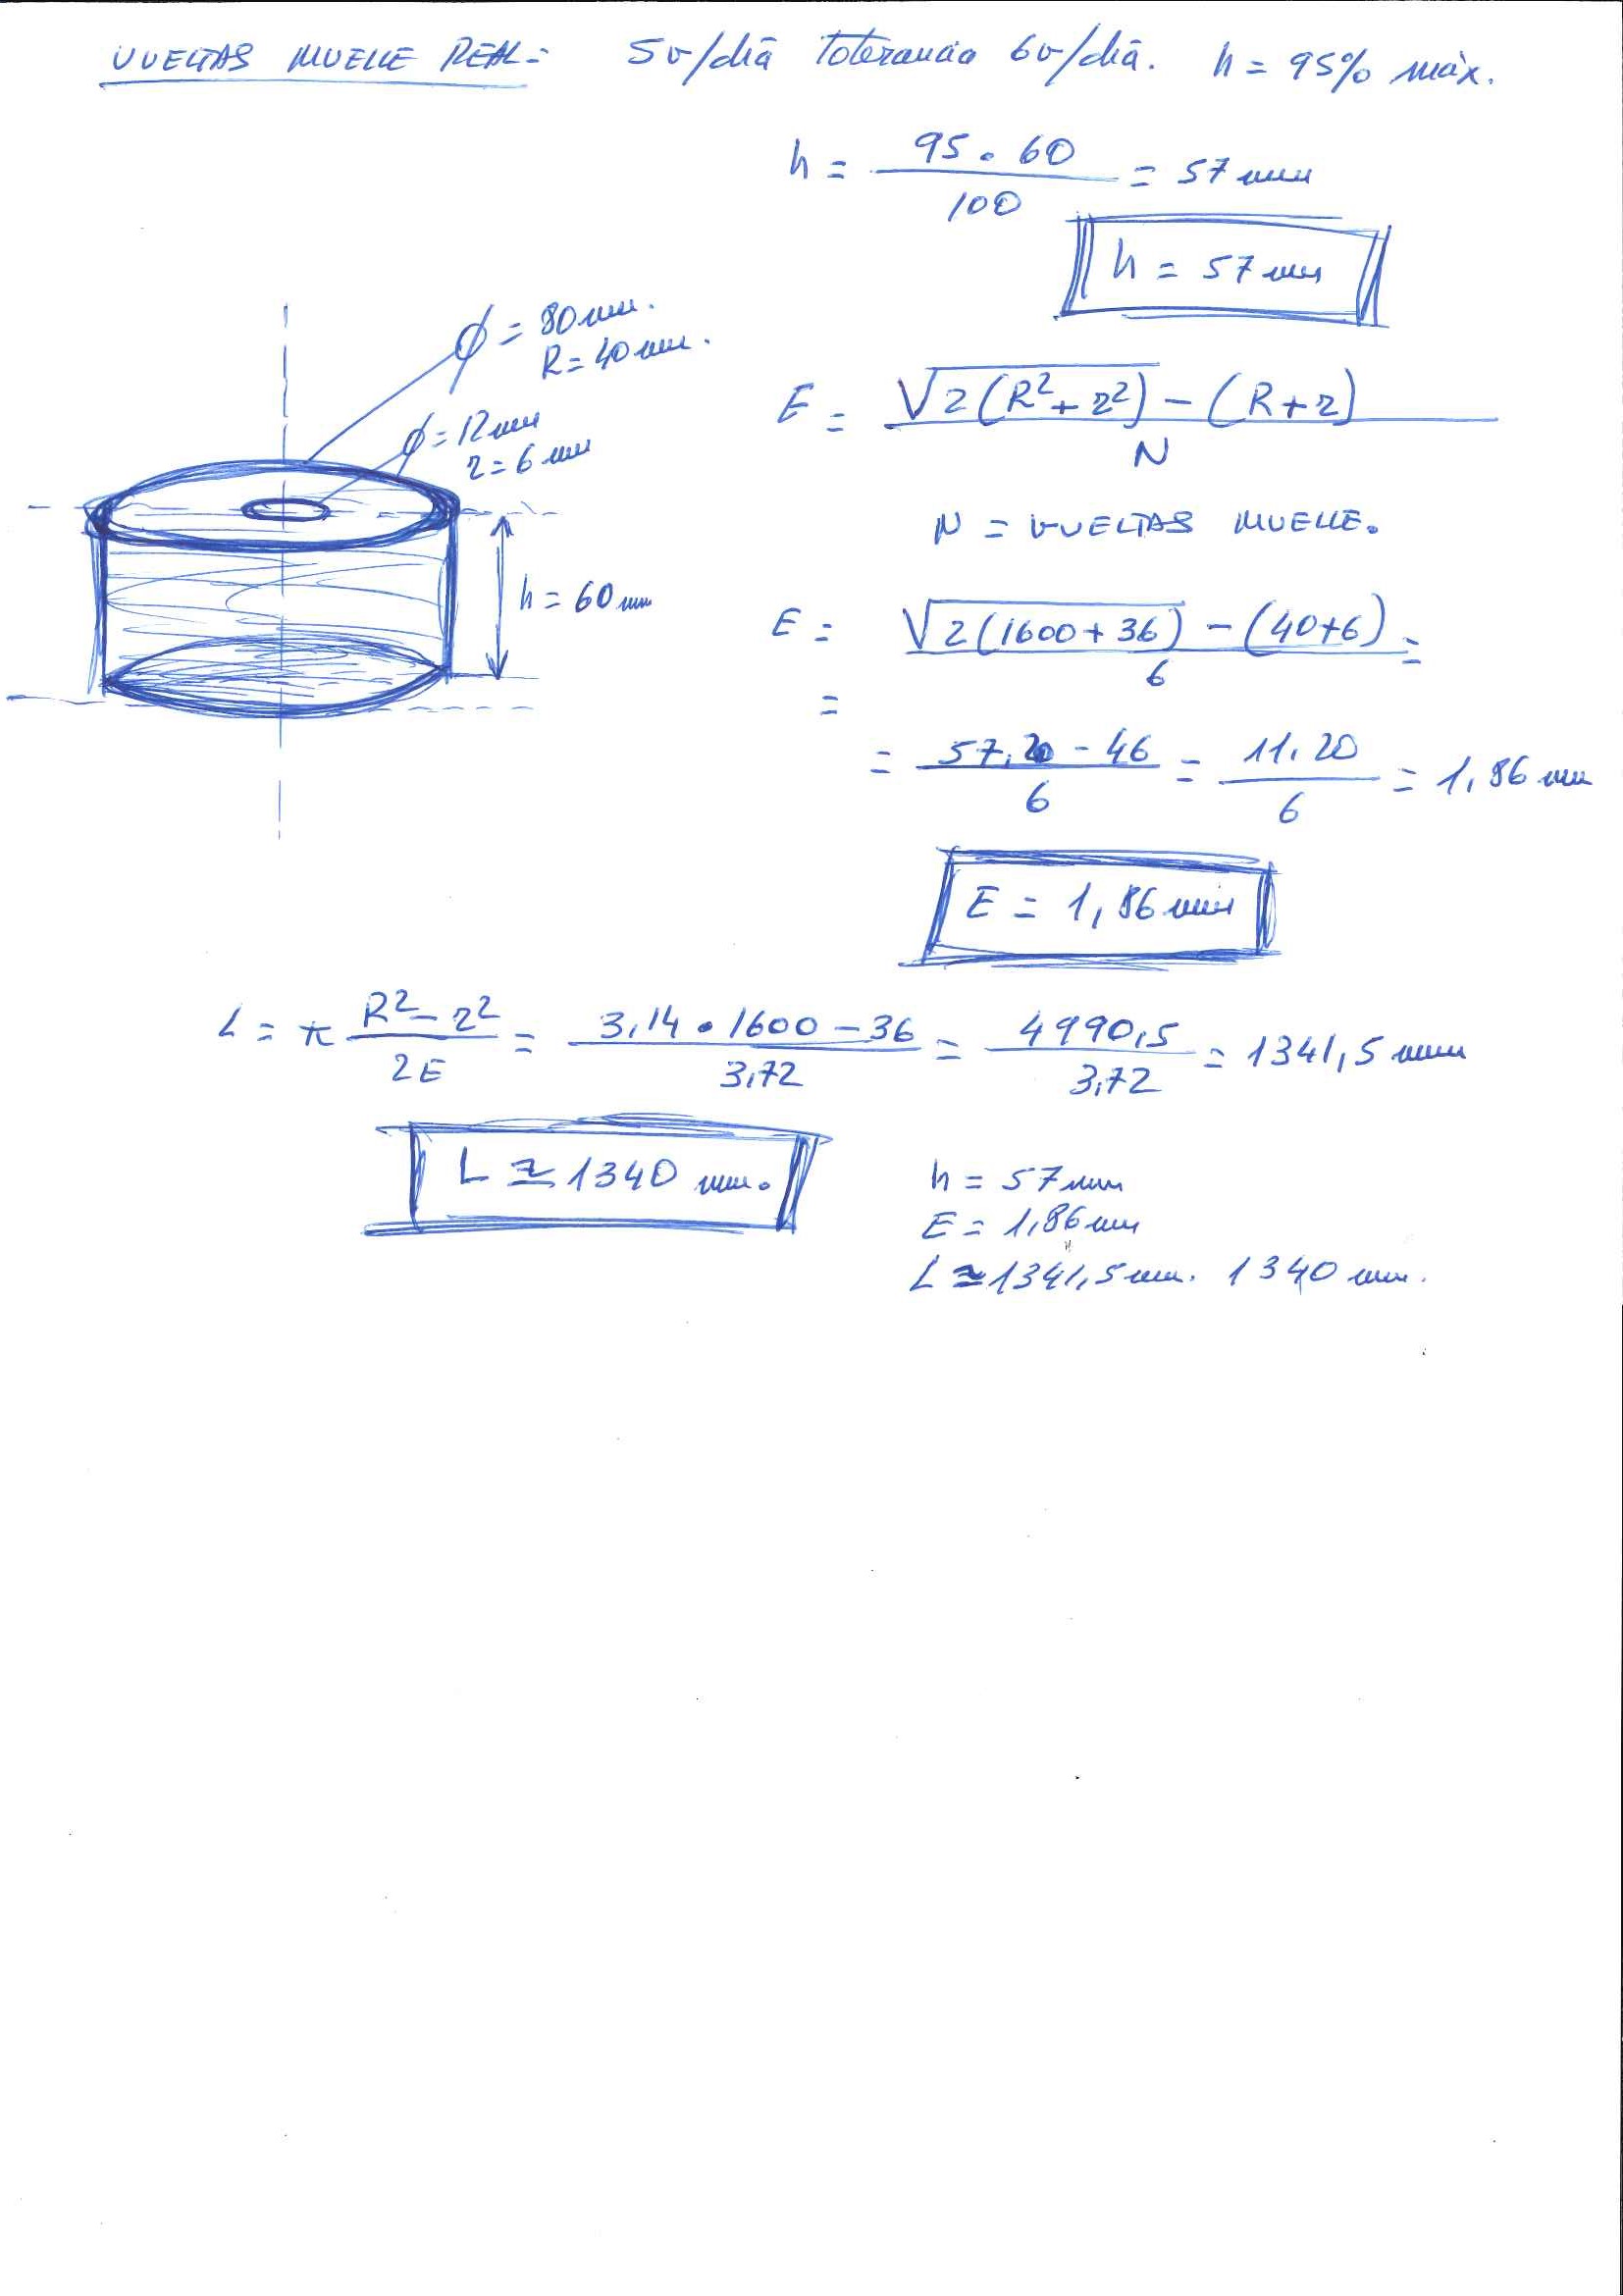 VUELTAS MUELLE REAL = 5v/día Tolerancia 6v/día. h = 95% máx.
h = 95 . 60 / 100 = 57 mm
h = 57 mm
ϕ = 80 mm.
R = 40 mm.
ϕ = 12 mm
r = 6 mm
h = 60 mm
E = √2(R²+r²) - (R+r) / N
N = VUELTAS MUELLE.
E = √2(1600+36) - (40+6) / 6 =
=
= 57,20 - 46 / 6 = 11,20 / 6 = 1,86 mm
E = 1,86 mm
L = π R² - r² / 2E = 3,14 • 1600 - 36 / 3,72 = 4990,5 / 3,72 = 1341,5 mm
L ≃ 1340 mm.
h = 57 mm
E = 1,86 mm
L ≃ 1341,5 mm. 1340 mm.